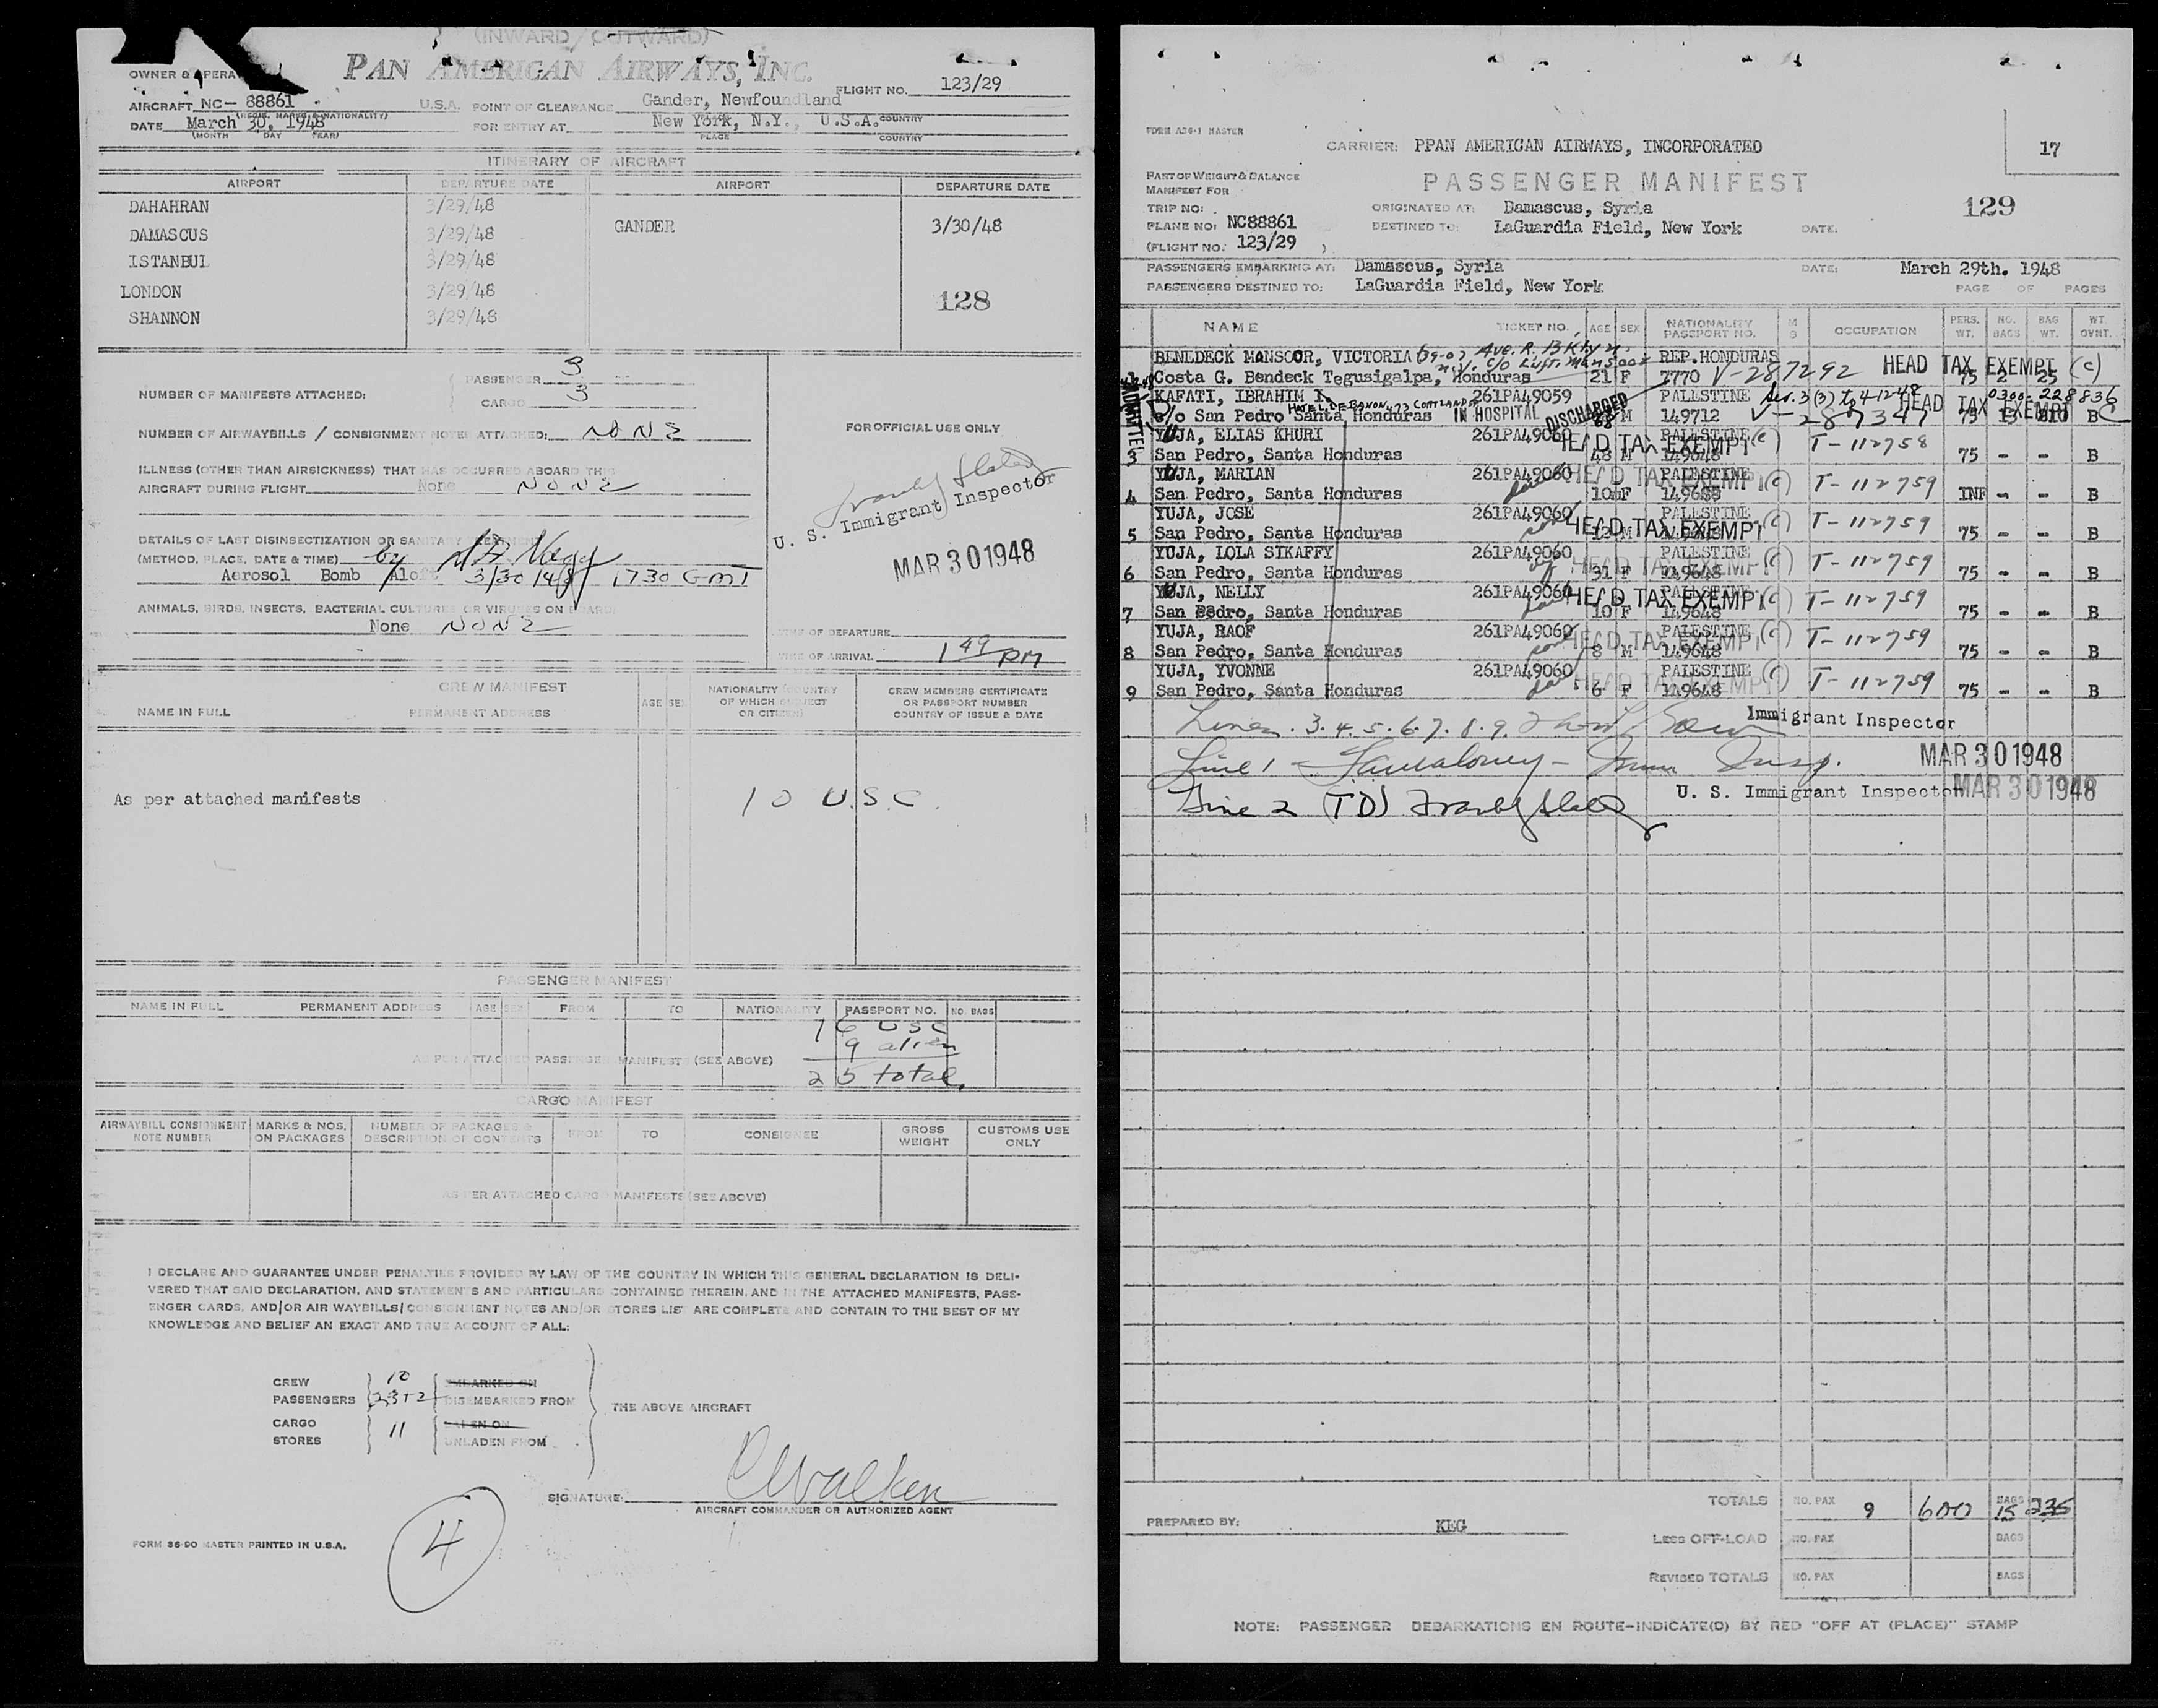 (INWARD / OUTWARD)
PAN AMERICAN AIRWAYS, INC.
OWNER & OPERA
FLIGHT NO. 123/29
AIRCRAFT NC- 88861 U.S.A. POINT OF CLEARANCE Gander, Newfoundland
(REGIS. MARKS & NATIONALITY) PLACE COUNTRY
DATE March 30, 1948 FOR ENTRY AT New York, N.Y., U.S.A.
(MONTH DAY YEAR) PLACE COUNTRY
ITINERARY OF AIRCRAFT
AIRPORT DEPARTURE DATE AIRPORT DEPARTURE DATE
DAHAHRAN 3/29/48
DAMASCUS 3/29/48 GANDER 3/30/48
ISTANBUL 3/29/48
LONDON 3/29/48 128
SHANNON 3/29/48
NUMBER OF MANIFESTS ATTACHED: PASSENGER 3
CARGO 3
NUMBER OF AIRWAYBILLS / CONSIGNMENT NOTES ATTACHED: NONE
FOR OFFICIAL USE ONLY
ILLNESS (OTHER THAN AIRSICKNESS) THAT HAS OCCURRED ABOARD THIS
AIRCRAFT DURING FLIGHT None NONE
U. S. Immigrant Inspector
MAR 30 1948
DETAILS OF LAST DISINSECTIZATION OR SANITARY TREATMENT
(METHOD, PLACE, DATE & TIME) by
Aerosol Bomb Aloft 3/30/48 1730 GMT
ANIMALS, BIRDS, INSECTS, BACTERIAL CULTURES OR VIRUSES ON BOARD
None NONE
TIME OF DEPARTURE
TIME OF ARRIVAL 1 49 PM
CREW MANIFEST
NAME IN FULL PERMANENT ADDRESS AGE SEX NATIONALITY (COUNTRY OF WHICH SUBJECT OR CITIZEN) CREW MEMBERS CERTIFICATE OR PASSPORT NUMBER COUNTRY OF ISSUE & DATE
As per attached manifests 10 U.S.C.
PASSENGER MANIFEST
NAME IN FULL PERMANENT ADDRESS AGE SEX FROM TO NATIONALITY PASSPORT NO. NO BAGS
16 USC
9 alien
AS PER ATTACHED PASSENGER MANIFESTS (SEE ABOVE)
25 total
CARGO MANIFEST
AIRWAYBILL CONSIGNMENT NOTE NUMBER MARKS & NOS. ON PACKAGES NUMBER OF PACKAGES & DESCRIPTION OF CONTENTS FROM TO CONSIGNEE GROSS WEIGHT CUSTOMS USE ONLY
AS PER ATTACHED CARGO MANIFESTS (SEE ABOVE)
I DECLARE AND GUARANTEE UNDER PENALTIES PROVIDED BY LAW OF THE COUNTRY IN WHICH THIS GENERAL DECLARATION IS DELI-
VERED THAT SAID DECLARATION, AND STATEMENTS AND PARTICULARS CONTAINED THEREIN, AND IN THE ATTACHED MANIFESTS, PASS-
ENGER CARDS, AND/OR AIR WAYBILLS/CONSIGNMENT NOTES AND/OR STORES LIST ARE COMPLETE AND CONTAIN TO THE BEST OF MY
KNOWLEDGE AND BELIEF AN EXACT AND TRUE ACCOUNT OF ALL:
CREW 10 EMBARKED ON
PASSENGERS 23+2 DISEMBARKED FROM THE ABOVE AIRCRAFT
CARGO LADEN ON
STORES 11 UNLADEN FROM
SIGNATURE:
AIRCRAFT COMMANDER OR AUTHORIZED AGENT
4
FORM 36-90 MASTER PRINTED IN U.S.A.
FORM A36-1 MASTER
CARRIER: PPAN AMERICAN AIRWAYS, INCORPORATED 17
PART OF WEIGHT & BALANCE
MANIFEST FOR
PASSENGER MANIFEST
TRIP NO: ORIGINATED AT: Damascus, Syria 129
PLANE NO: NC88861 DESTINED TO: LaGuardia Field, New York DATE.
(FLIGHT NO. 123/29 )
PASSENGERS EMBARKING AT: Damascus, Syria DATE: March 29th. 1948
PASSENGERS DESTINED TO: LaGuardia Field, New York PAGE OF PAGES
NAME TICKET NO. AGE SEX NATIONALITY PASSPORT NO. M S OCCUPATION PERS. WT. NO. BAGS BAG WT. WT. OVNT.
BENEDECK MANSOOR, VICTORIA REP.HONDURAS
Costa G. Bendeck Tegusigalpa, Honduras 21 F 7770 V-287292 HEAD TAX EXEMPT (C) 75 2 25
ADMITTED
KAFATI, IBRAHIM I. 261PA49059 PALESTINE
c/o San Pedro Santa Honduras IN HOSPITAL DISCHARGED 68 M 149712 V-287347 HEAD TAX EXEMPT 75 13 B
YUJA, ELIAS KHURI 261PA49060 PALESTINE HEAD TAX EXEMPT (C) T-112758
3 San Pedro, Santa Honduras 48 M 149648 75 - - B
YUJA, MARIAN 261PA49060 PALESTINE HEAD TAX EXEMPT (C) T-112759
4 San Pedro, Santa Honduras F INF - - B
YUJA, JOSE 261PA49060 PALESTINE HEAD TAX EXEMPT (C) T-112759
5 San Pedro, Santa Honduras 12 M 149648 75 - - B
YUJA, LOLA SIKAFFY 261PA49060 PALESTINE HEAD TAX EXEMPT (C) T-112759
6 San Pedro, Santa Honduras 31 F 149648 75 - - B
YUJA, NELLY 261PA49060 PALESTINE HEAD TAX EXEMPT (C) T-112759
7 San Pedro, Santa Honduras 10 F 149648 75 - - B
YUJA, RAOF 261PA49060 PALESTINE HEAD TAX EXEMPT (C) T-112759
8 San Pedro, Santa Honduras 8 M 149648 75 - - B
YUJA, YVONNE 261PA49060 PALESTINE HEAD TAX EXEMPT (C) T-112759
9 San Pedro, Santa Honduras 6 F 149648 75 - - B
Lines. 3. 4. 5. 6. 7. 8. 9. Immigrant Inspector
Line 1 - MAR 30 1948
Line 2 (TD) U. S. Immigrant Inspector MAR 30 1948
TOTALS NO. PAX 9 600 BAGS 15 235
PREPARED BY: KEG
LESS OFF-LOAD NO. PAX BAGS
REVISED TOTALS NO. PAX BAGS
NOTE: PASSENGER DEBARKATIONS EN ROUTE-INDICATE(D) BY RED "OFF AT (PLACE)" STAMP